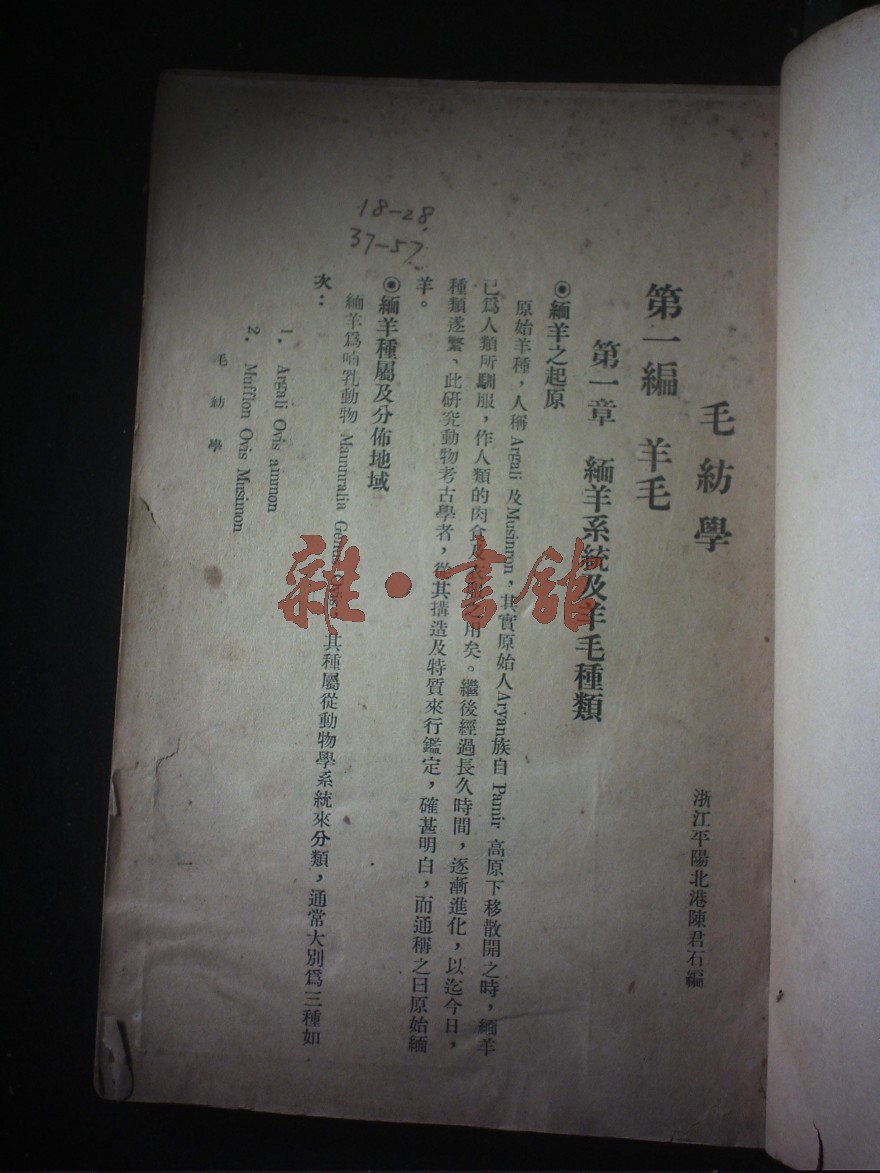 毛紡學
浙江平陽北港陳君石編
第一編 羊毛
第一章 緬羊系統及羊毛種類
◉緬羊之起原
原始羊種，人稱 Argali 及Musimron，其實原始人Aryan族自 Pamir 高原下移散開之時，緬羊
已爲人類所馴服，作人類的肉食及 用矣。繼後經過長久時間，逐漸進化，以迄今日，
種類遂繁、此研究動物考古學者，從其搆造及特質來行鑑定，確甚明白，而通稱之曰原始緬
羊。
◉緬羊種屬及分佈地域
緬羊爲哺乳動物 Mamnralia 其種屬從動物學系統來分類，通常大別爲三種如
次：
1. Argali Ovis ammon
2. Mufflon Ovis Musimon
毛紡學
一
18-28
37-57
雜·書館